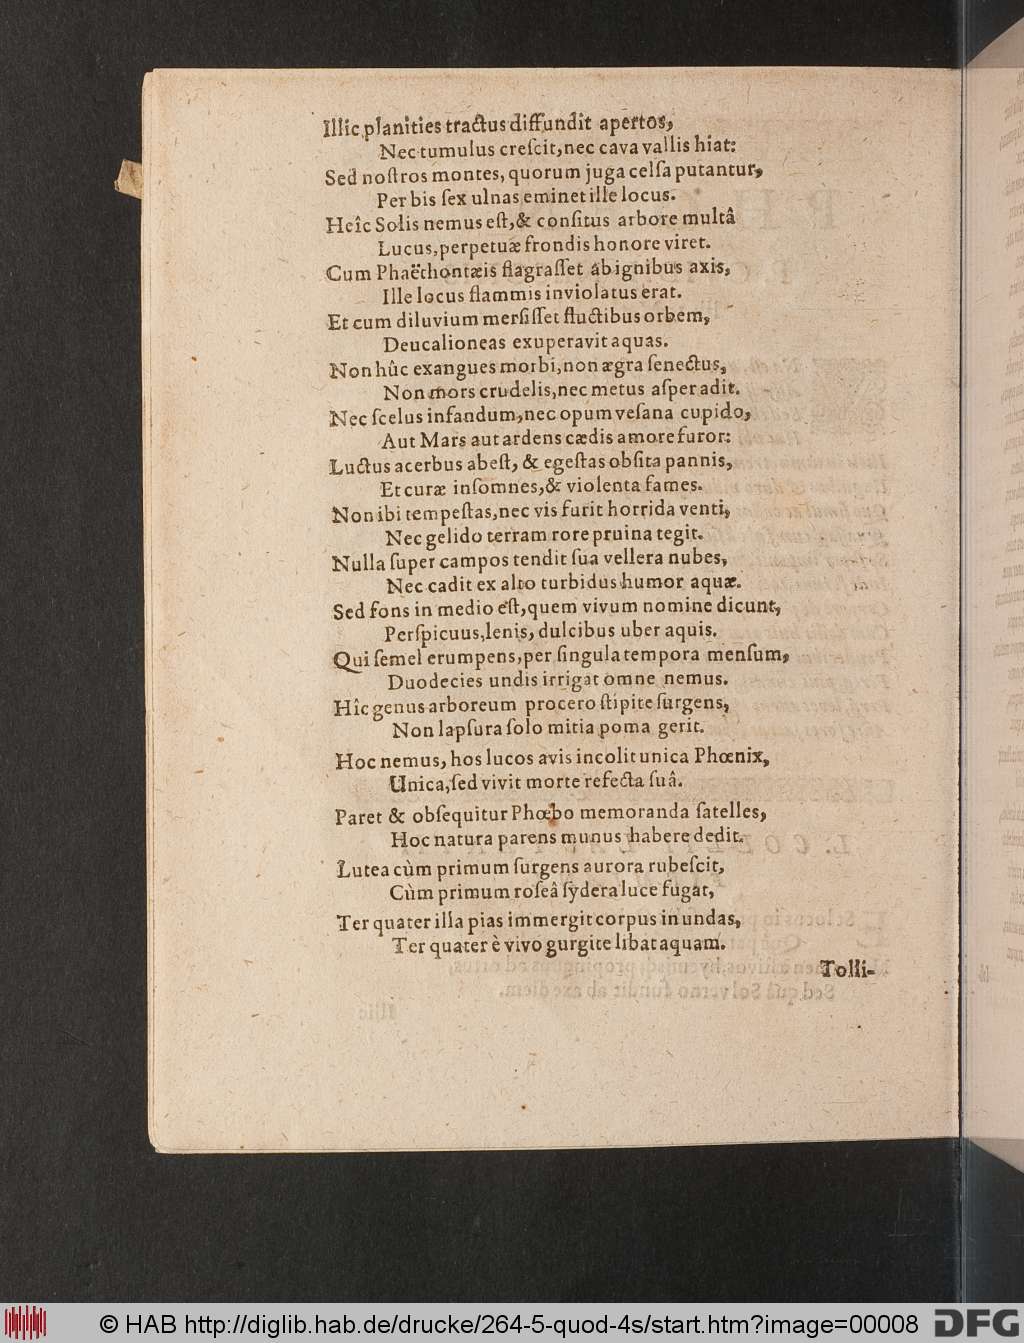 Illic planities tractus diffundit apertos,
Nec tumulus creſcit, nec cava vallis hiat:
Sed noſtros montes, quorum juga celſa putantur,
Per bis ſex ulnas eminet ille locus.
Heîc Solis nemus eſt, & conſitus arbore multâ
Lucus, perpetuæ frondis honore viret.
Cum Phaëthontæis flagraſſet ab ignibus axis,
Ille locus flammis inviolatus erat.
Et cum diluvium merſiſſet fluctibus orbem,
Deucalioneas exuperavit aquas.
Non hûc exangues morbi, non ægra ſenectus,
Non mors crudelis, nec metus aſper adit.
Nec ſcelus infandum, nec opum veſana cupido,
Aut Mars aut ardens cædis amore furor:
Luctus acerbus abeſt, & egeſtas obſita pannis,
Et curæ inſomnes, & violenta fames.
Non ibi tempeſtas, nec vis furit horrida venti,
Nec gelido terram rore pruina tegit.
Nulla ſuper campos tendit ſua vellera nubes,
Nec cadit ex alto turbidus humor aquæ.
Sed fons in medio eſt, quem vivum nomine dicunt,
Perſpicuus, lenis, dulcibus uber aquis.
Qui ſemel erumpens, per ſingula tempora menſum,
Duodecies undis irrigat omne nemus.
Hîc genus arboreum procero ſtipite ſurgens,
Non lapſura ſolo mitia poma gerit.
Hoc nemus, hos lucos avis incolit unica Phœnix,
Unica, ſed vivit morte refecta ſuâ.
Paret & obſequitur Phœbo memoranda ſatelles,
Hoc natura parens munus habere dedit.
Lutea cùm primum ſurgens aurora rubeſcit,
Cùm primum roſeâ ſydera luce fugat,
Ter quater illa pias immergit corpus in undas,
Ter quater è vivo gurgite libat aquam.
Tolli-
© HAB http://diglib.hab.de/drucke/264-5-quod-4s/start.htm?image=00008
DFG